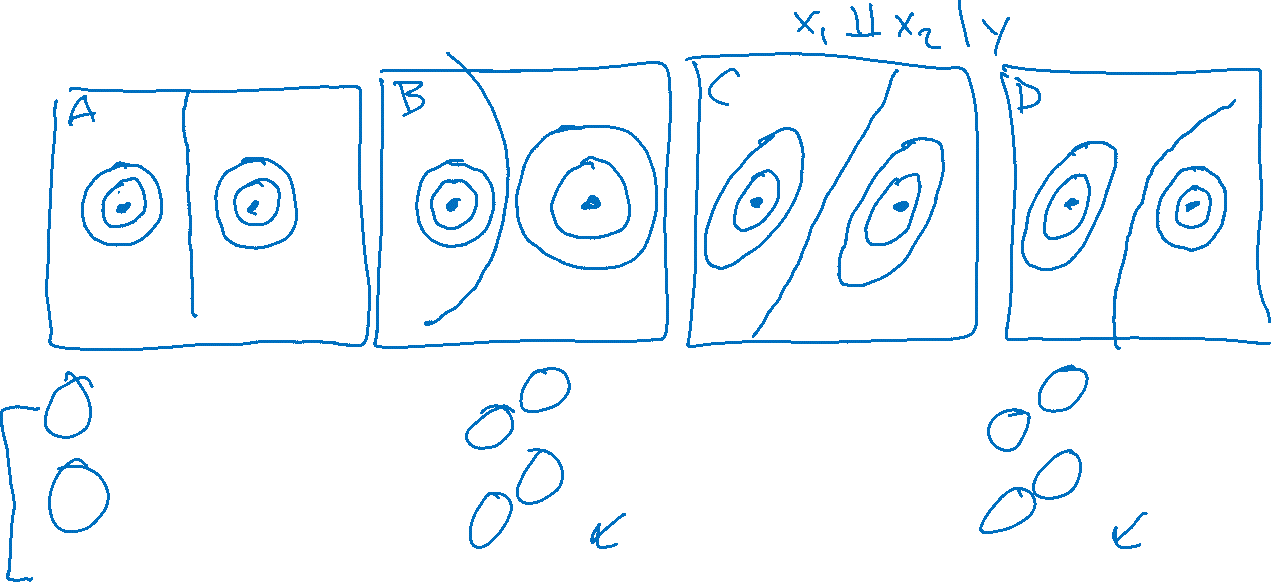 x₁ ⫫ x₂ | y
A
B
C
D